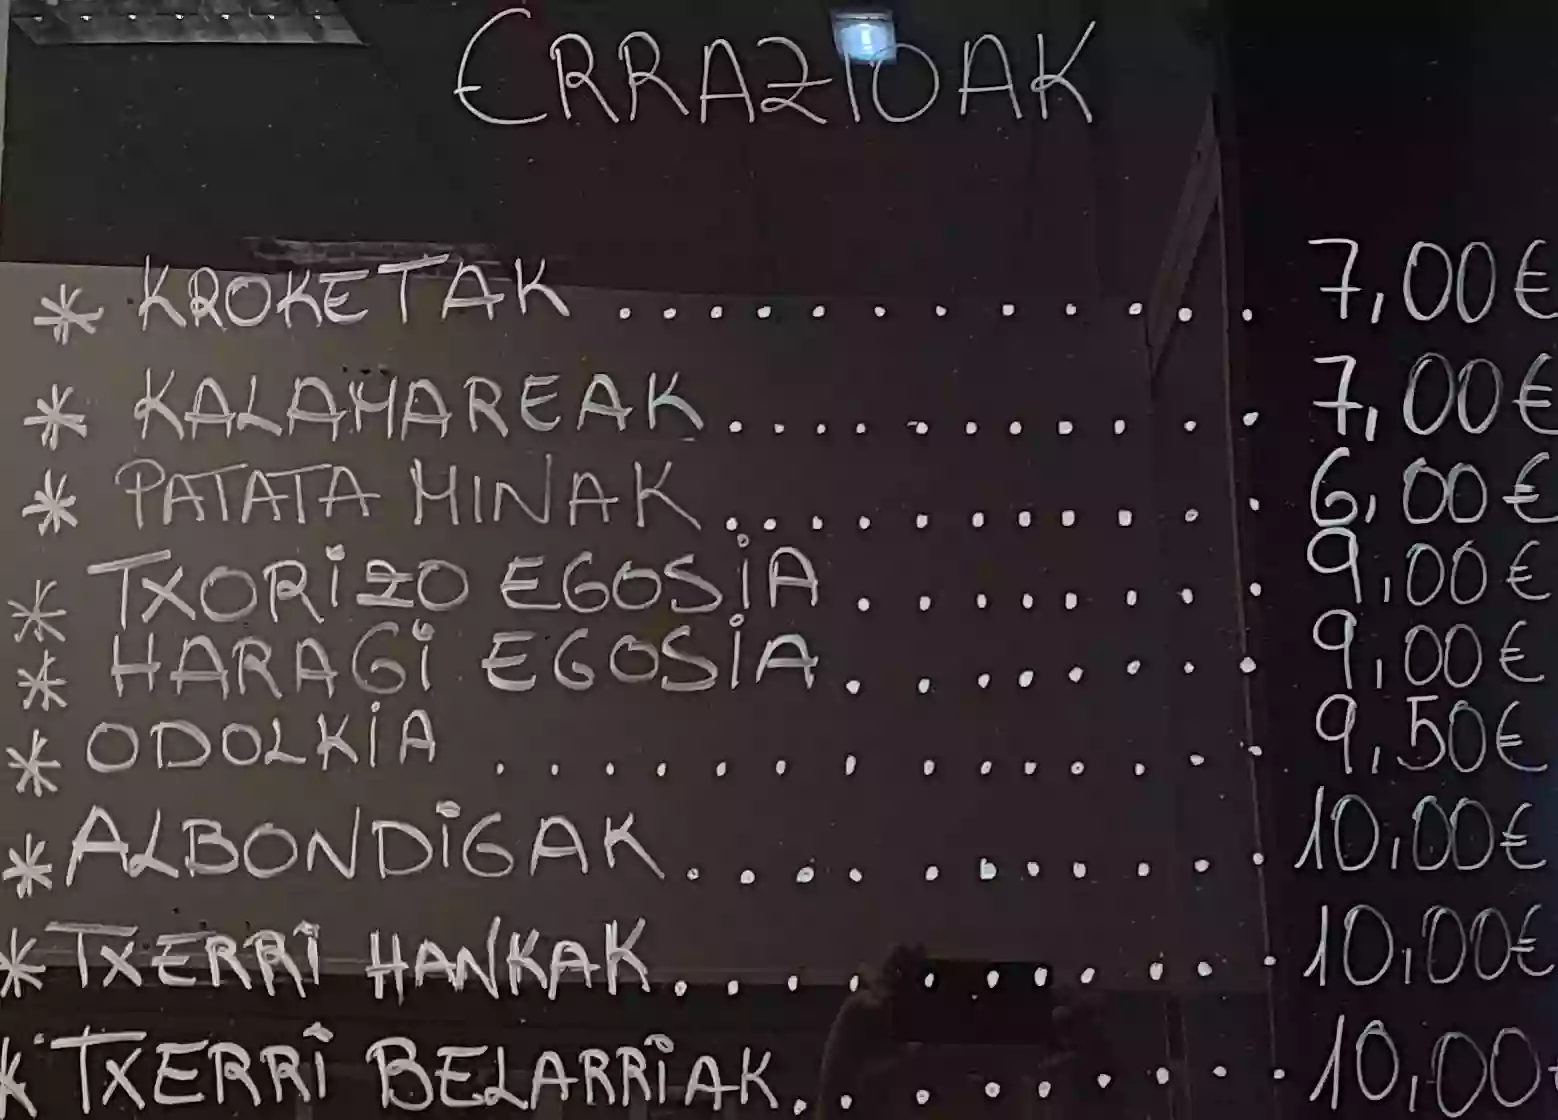 ERRAZIOAK
* KROKETAK . . . . . . . . . . . . 7,00€
* KALAMAREAK . . . . . . . . . . . 7,00€
* PATATA MINAK . . . . . . . . . . . 6,00€
* TXORIZO EGOSIA . . . . . . . . 9,00€
* HARAGI EGOSIA . . . . . . . . 9,00€
* ODOLKIA . . . . . . . . . . . . . . 9,50€
* ALBONDIGAK . . . . . . . . . . . 10,00€
* TXERRI HANKAK . . . . . . . . . . . 10,00€
* TXERRI BELARRIAK . . . . . . . . . 10,00